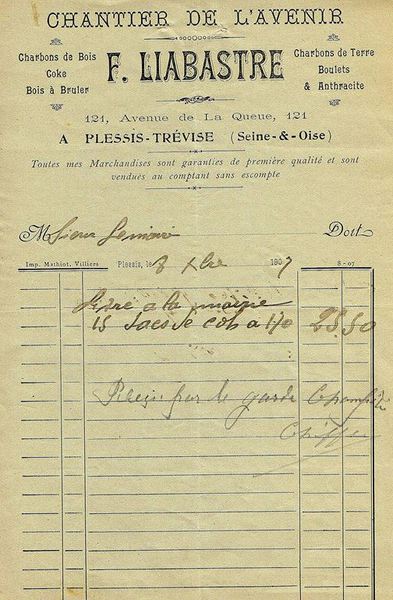 CHANTIER DE L'AVENIR
Charbons de Bois
Coke
Bois à Bruler
F. LIABASTRE
Charbons de Terre
Boulets
& Anthracite
121, Avenue de La Queue, 121
A PLESSIS-TRÉVISE (Seine-&-Oise)
Toutes mes Marchandises sont garanties de première qualité et sont
vendues au comptant sans escompte
Msieur Lemaire Doit
Imp. Mathiot, Villiers Plessis, le 8 Xbre 1907 8-07
Livré a la mairie
15 sacs de cok a 1.70 25.50
par le garde Champêtre